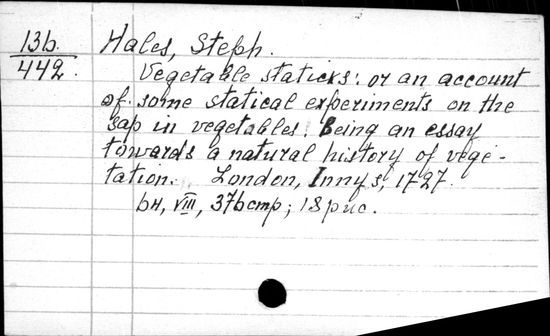 13b.
442.
Hales, Steph.
Vegetable staticks: or an account
of some statical experiments on the
sap in vegetables. Being an essay
towards a natural history of vege-
tation. London, Innys, 1727.
бн, VIII, 376 стр; 18 рис.